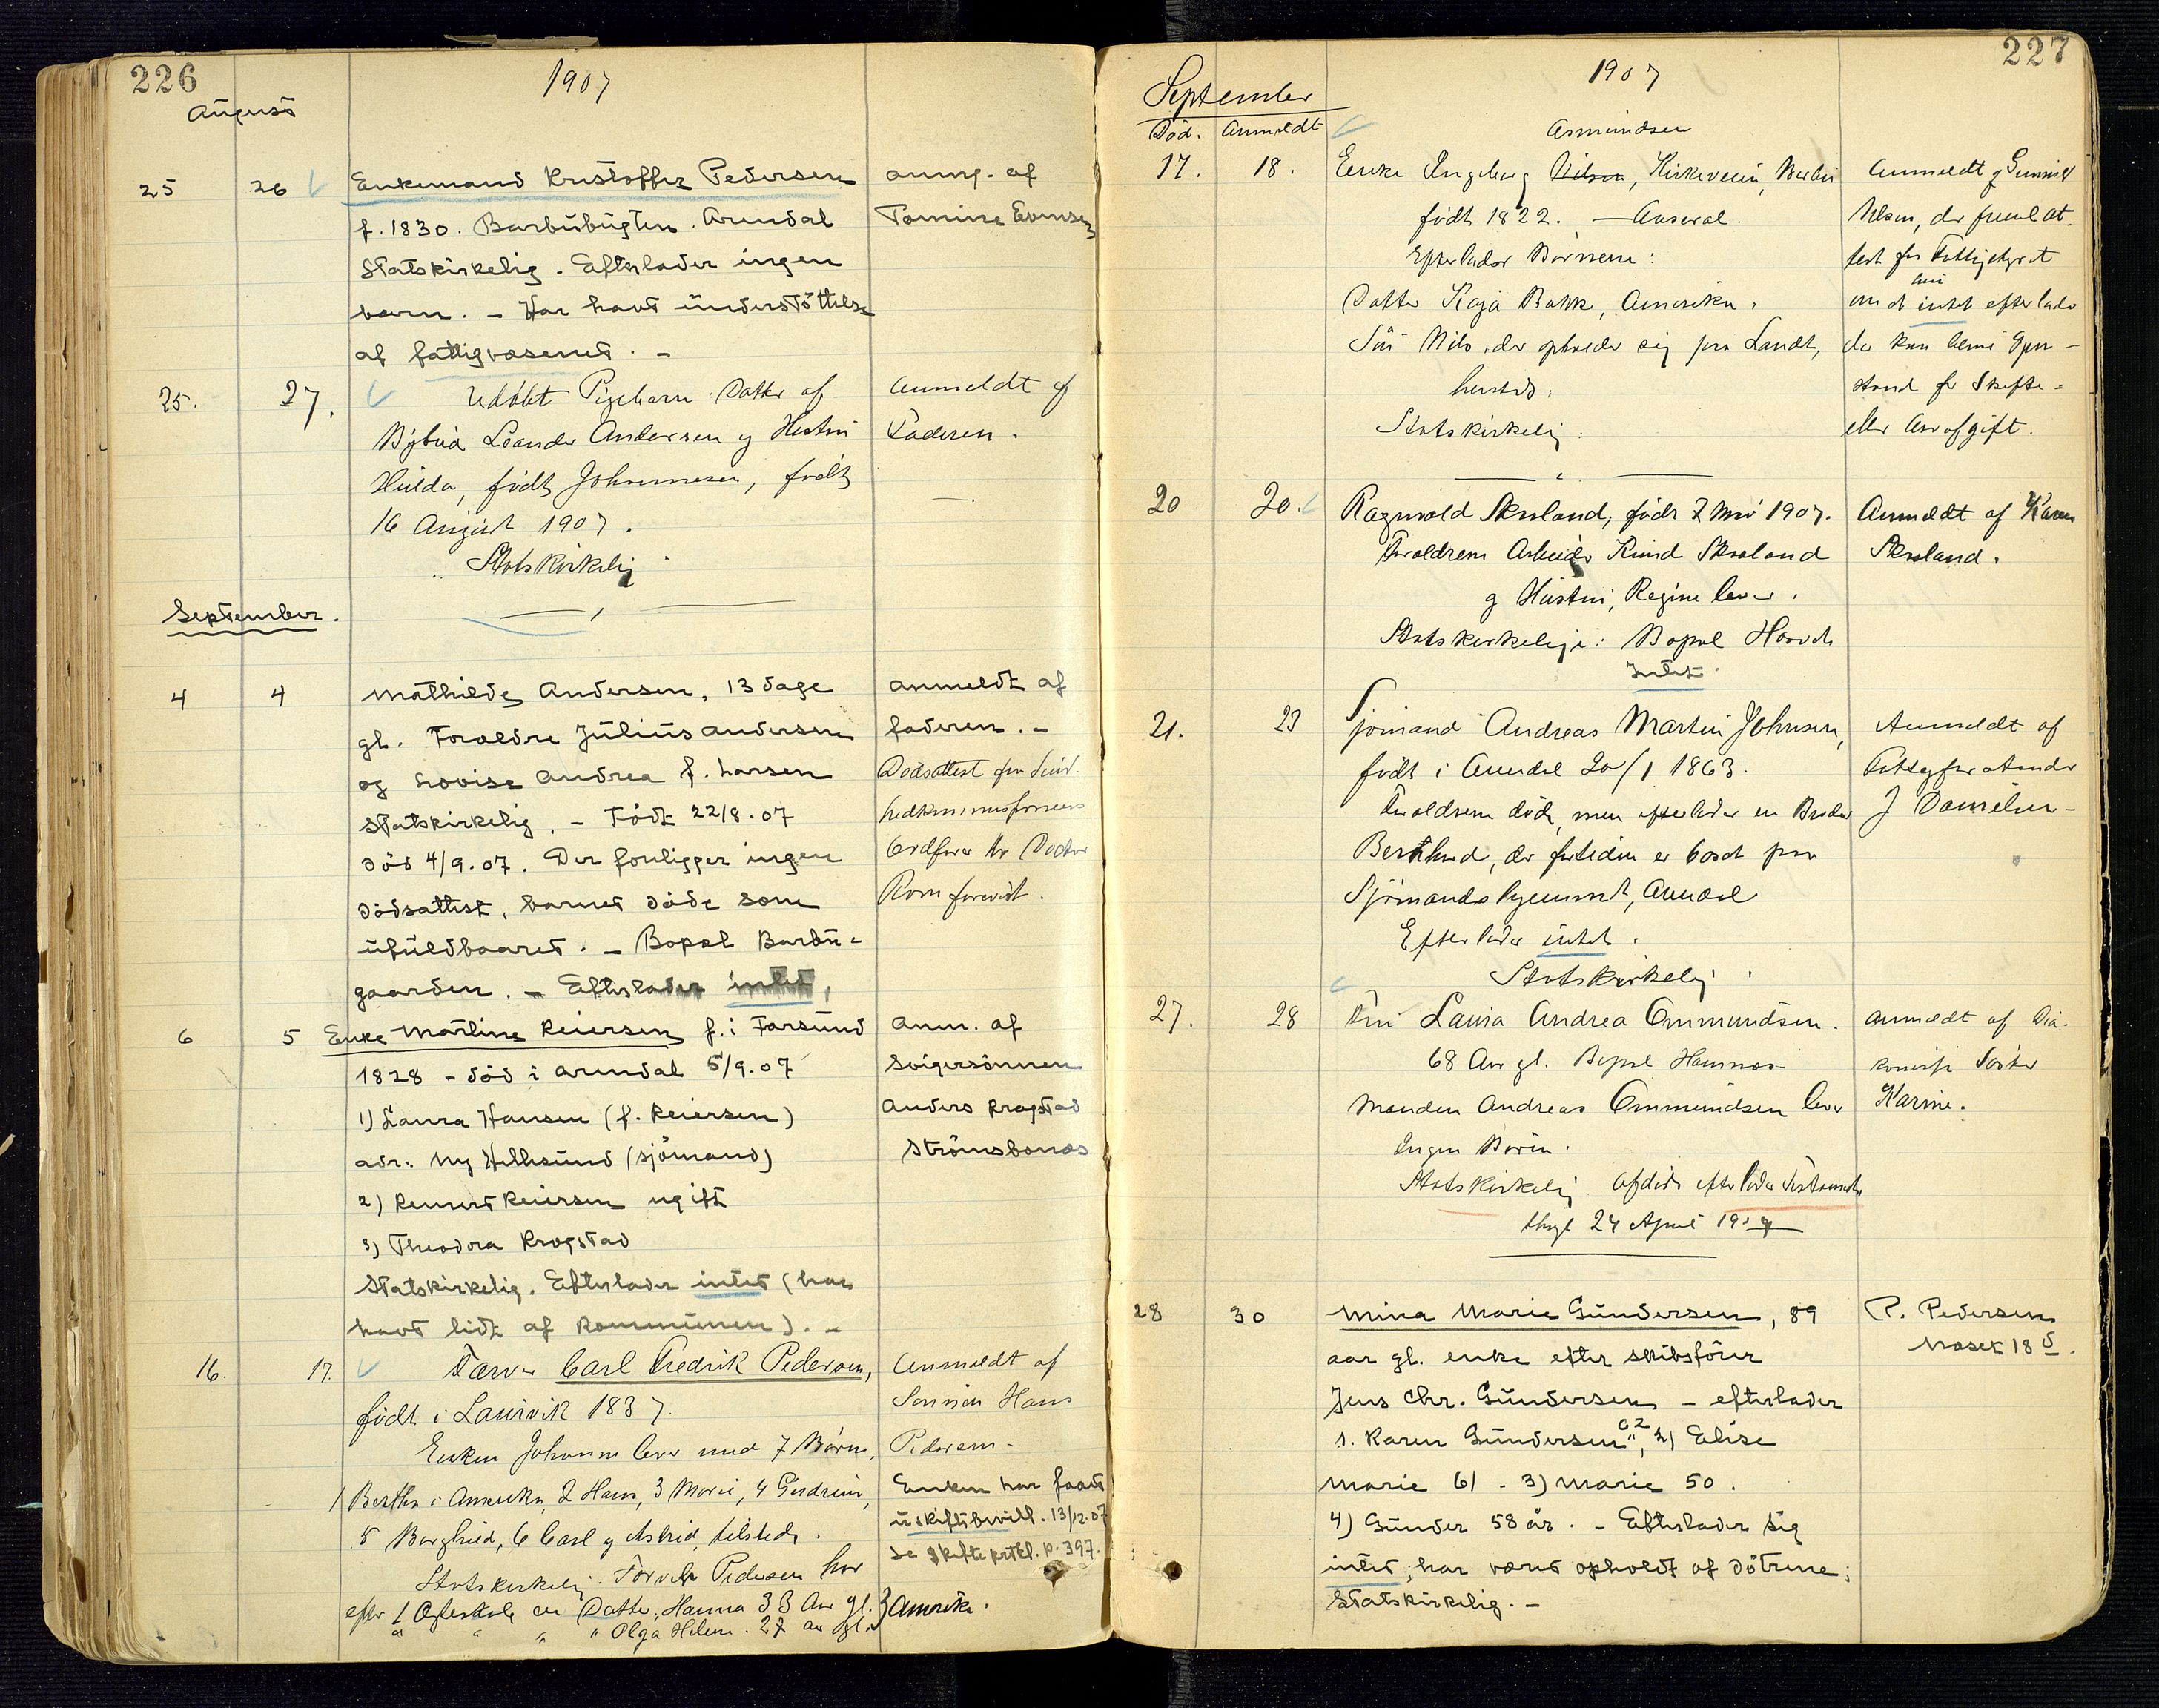 226
1907
August
25 26 Enkemand Kristoffer Pedersen
f. 1830. Barbubugten. Arendal
Statskirkelig. Efterlader ingen
barn. – Har havt understöttelse
af fattigvæsenet. –
anm. af
Tomine Evensen
25. 27. Udöbt Pigebarn Datter af
Bybud Leander Andersen og Hustru
Hilda, född Johannesen, född
16 August 1907.
Statskirkelig
Anmeldt af
Faderen.
September.
4 4 Mathilde Andersen, 13 dage
gl. Foraldre Julius Andersen
og Lovise Andrea f. Larsen
Statskirkelig. – Födt 22/8.07
död 4/9.07. Der foreligger ingen
dödsattest, barnet döde som
ufuldbaaret. – Bopæl Barbu-
gaarden. – Efterlader intet,
anmeldt af
faderen. –
Dödsattest fra Sund-
hedskommissionens
Ordförer Hr Doctor
Rom forevist.
6 5 Enke Martine Reiersen f. i Farsund
1828 – död i Arendal 5/9.07
1) Laura Hansen (f. Reiersen)
adr. Ny Hellesund (sjömand)
2) Reinert Reiersen ugift
3) Theodora Krogstad
Statskirkelig. Efterlader intet (har
havt lidt af kommunen). –
Anm. af
Svigersönnen
Anders Krogstad
Strömsbonæs
16. 17. Farver Carl Fredrik Pedersen,
födt i Laurvik 1837.
Enken Johanne lever med 7 Börn,
1 Bertha i Amerika, 2 Hans, 3 Marie, 4 Gudrun,
5 Borghild, 6 Carl og Astrid, tilstede.
Statskirkelig. Farver Pedersen har
efter 1 Ægteskab en Datter, Hanna 33 Aar gl.
" " " " Olga Helene. 27 aar gl.
Anmeldt af
Sönnen Hans
Pedersen –
Enken har faaet
uskiftebevill. 13/12.07
se Skifteprtkl. p. 397.
} Amerika.
227
1907
September
Död. Anmeldt
Asmundsen
17. 18. Enke Ingeborg Nilsen, Kirkeveien, Barbu
född 1822. – Aaseral.
Efterlader Börnene:
Datter Kaja Bakk, Amerika.
Sön Nils, der opholder sig paa Landet,
hersteds.
Statskirkelig.
Anmeldt af Gunnild
Nilsen, der fremlat-
test fra Fattigstyret
hun
om at intet efterlader
der kan blive Gjen-
stand for Skifte-
eller Arveafgift.
20 20. Ragnvald Skreland, födt 7 Mai 1907.
Foraldrene Arbeider Knud Skreland
og Hustru, Regine lever.
Statskirkelige: Bopæl Haavet
Intet.
Anmeldt af Karen
Skreland.
21. 23 Sjömand Andreas Martin Johnsen,
födt i Arendal 20/1 1863.
Foraldrene döde, men efterlader en Broder
Bernhard, der fortiden er bosat paa
Sjömandshjemmet, Arendal
Efterlader intet.
Statskirkelig.
Anmeldt af
Fattigforstander
J Danielsen –
27. 28 Fru Laura Andrea Ommundsen.
68 Aar gl. Bopæl Havnnæs
Manden Andreas Ommundsen lever
Ingen Börn.
Statskirkelig. Afdöde efterlader Testamente
thgl 24 April 1907
Anmeldt af Dia-
konisse Söster
Karine.
28 30 Mina Marie Gundersen, 89
aar gl. enke efter skibsförer
Jens Chr. Gundersen – efterlader
1. Karen Gundersen 62, 2) Elise
Marie 61 – 3) Marie 50.
4) Gunder 58 år. – Efterlader sig
intet; har været opholdt af dötrene;
Statskirkelig. –
P. Pedersen
Matr. 18 5.